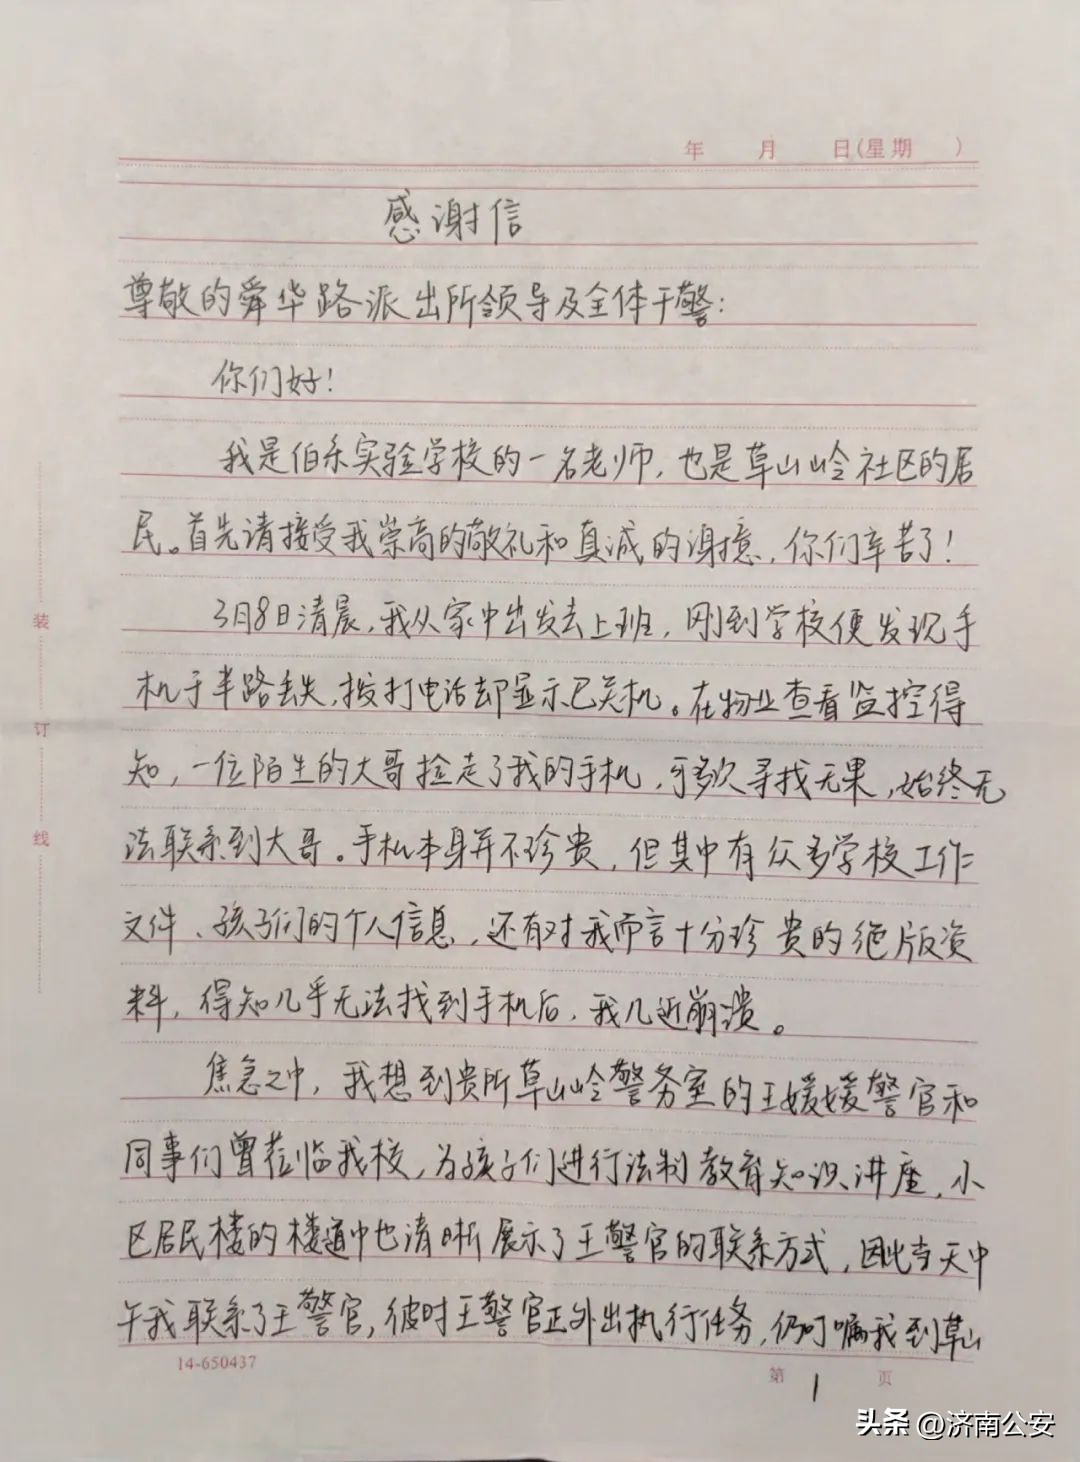 年 月 日(星期 )
感谢信
尊敬的舜华路派出所领导及全体干警:
你们好!
我是伯乐实验学校的一名老师,也是草山岭社区的居
民。首先请接受我崇高的敬礼和真诚的谢意,你们辛苦了!
3月8日清晨,我从家中出发去上班,刚到学校便发现手
机于半路丢失,拨打电话却显示已关机。在物业查看监控得
知,一位陌生的大哥捡走了我的手机,可多次寻找无果,始终无
法联系到大哥。手机本身并不珍贵,但其中有众多学校工作
文件、孩子们的个人信息,还有对我而言十分珍贵的绝版资
料,得知几乎无法找到手机后,我几近崩溃。
焦急之中,我想到贵所草山岭警务室的王媛媛警官和
同事们曾莅临我校,为孩子们进行法制教育知识讲座,小
区居民楼的楼道中也清晰展示了王警官的联系方式,因此当天中
午我联系了王警官,彼时王警官正外出执行任务,仍叮嘱我到草山
装
订
线
14-650437
第 1 页
头条 @济南公安